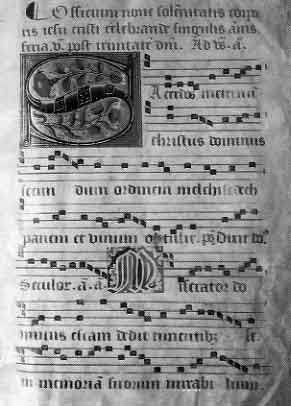 Officium nove solēnitatis corpo
ris iesu cristi celebrande singulis ānis
feria .v. post trinitatē dn̄i. Ad v̄s. ā.
Acerdos in eternū
christus dominus
secun dum ordinem melchisedech
panem et vinum obtulit. p̄s Dixit do᷒
Seculor. a. ā Iserator do
minus escam dedit timentibꝫ se
in memoriā suorum mirabi lium.